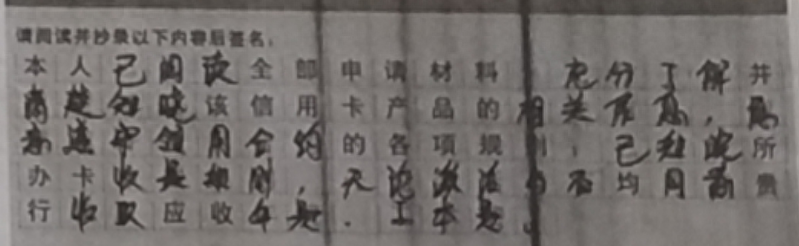 请阅读并抄录以下内容后签名:
本人已阅读全部申请材料 充分了解并
清楚知晓该信用卡产品的相关信息,愿
意遵守领用合约的各项规则,已知晓所
办卡收具规则,无论激活与否均同 贵
行收取应收年 。工本